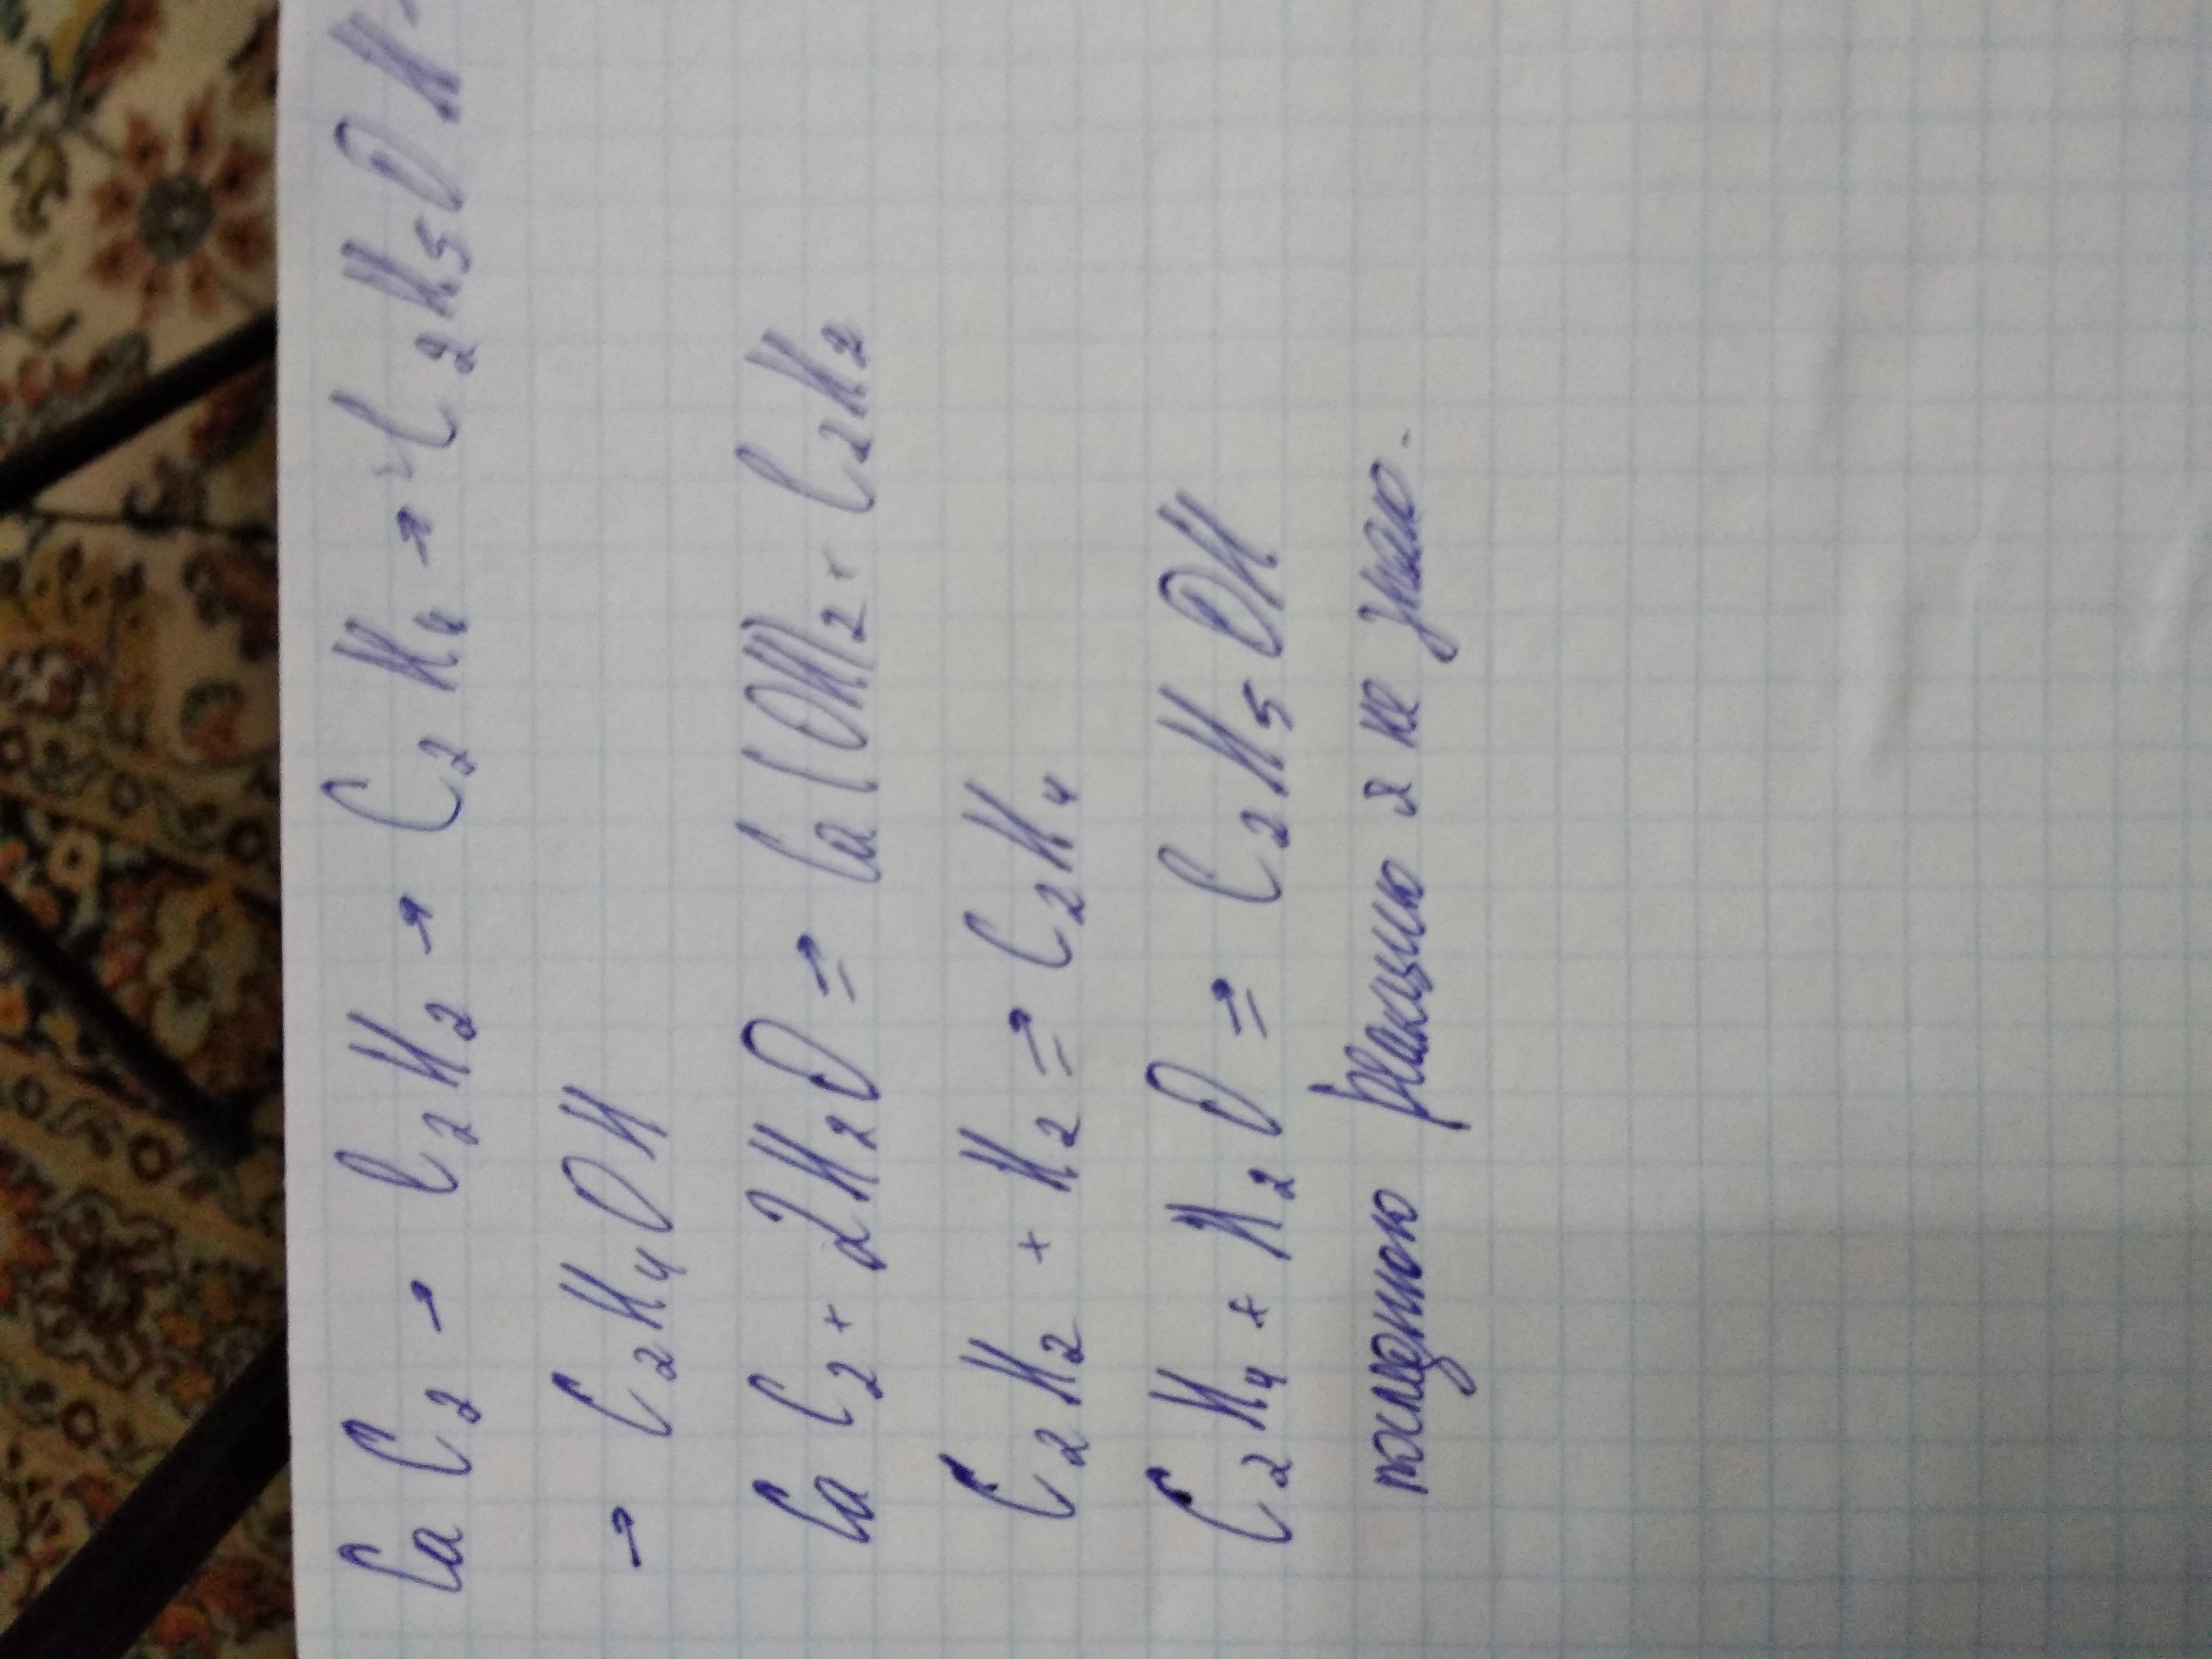 CaC₂ → C₂H₂ → C₂H₄ → C₂H₅OH →
→ C₂H₄OH
CaC₂ + 2H₂O ⇒ Ca(OH)₂ + C₂H₂
C₂H₂ + H₂ ⇒ C₂H₄
C₂H₄ + H₂O ⇒ C₂H₅OH
последнюю реакцию я не знаю.